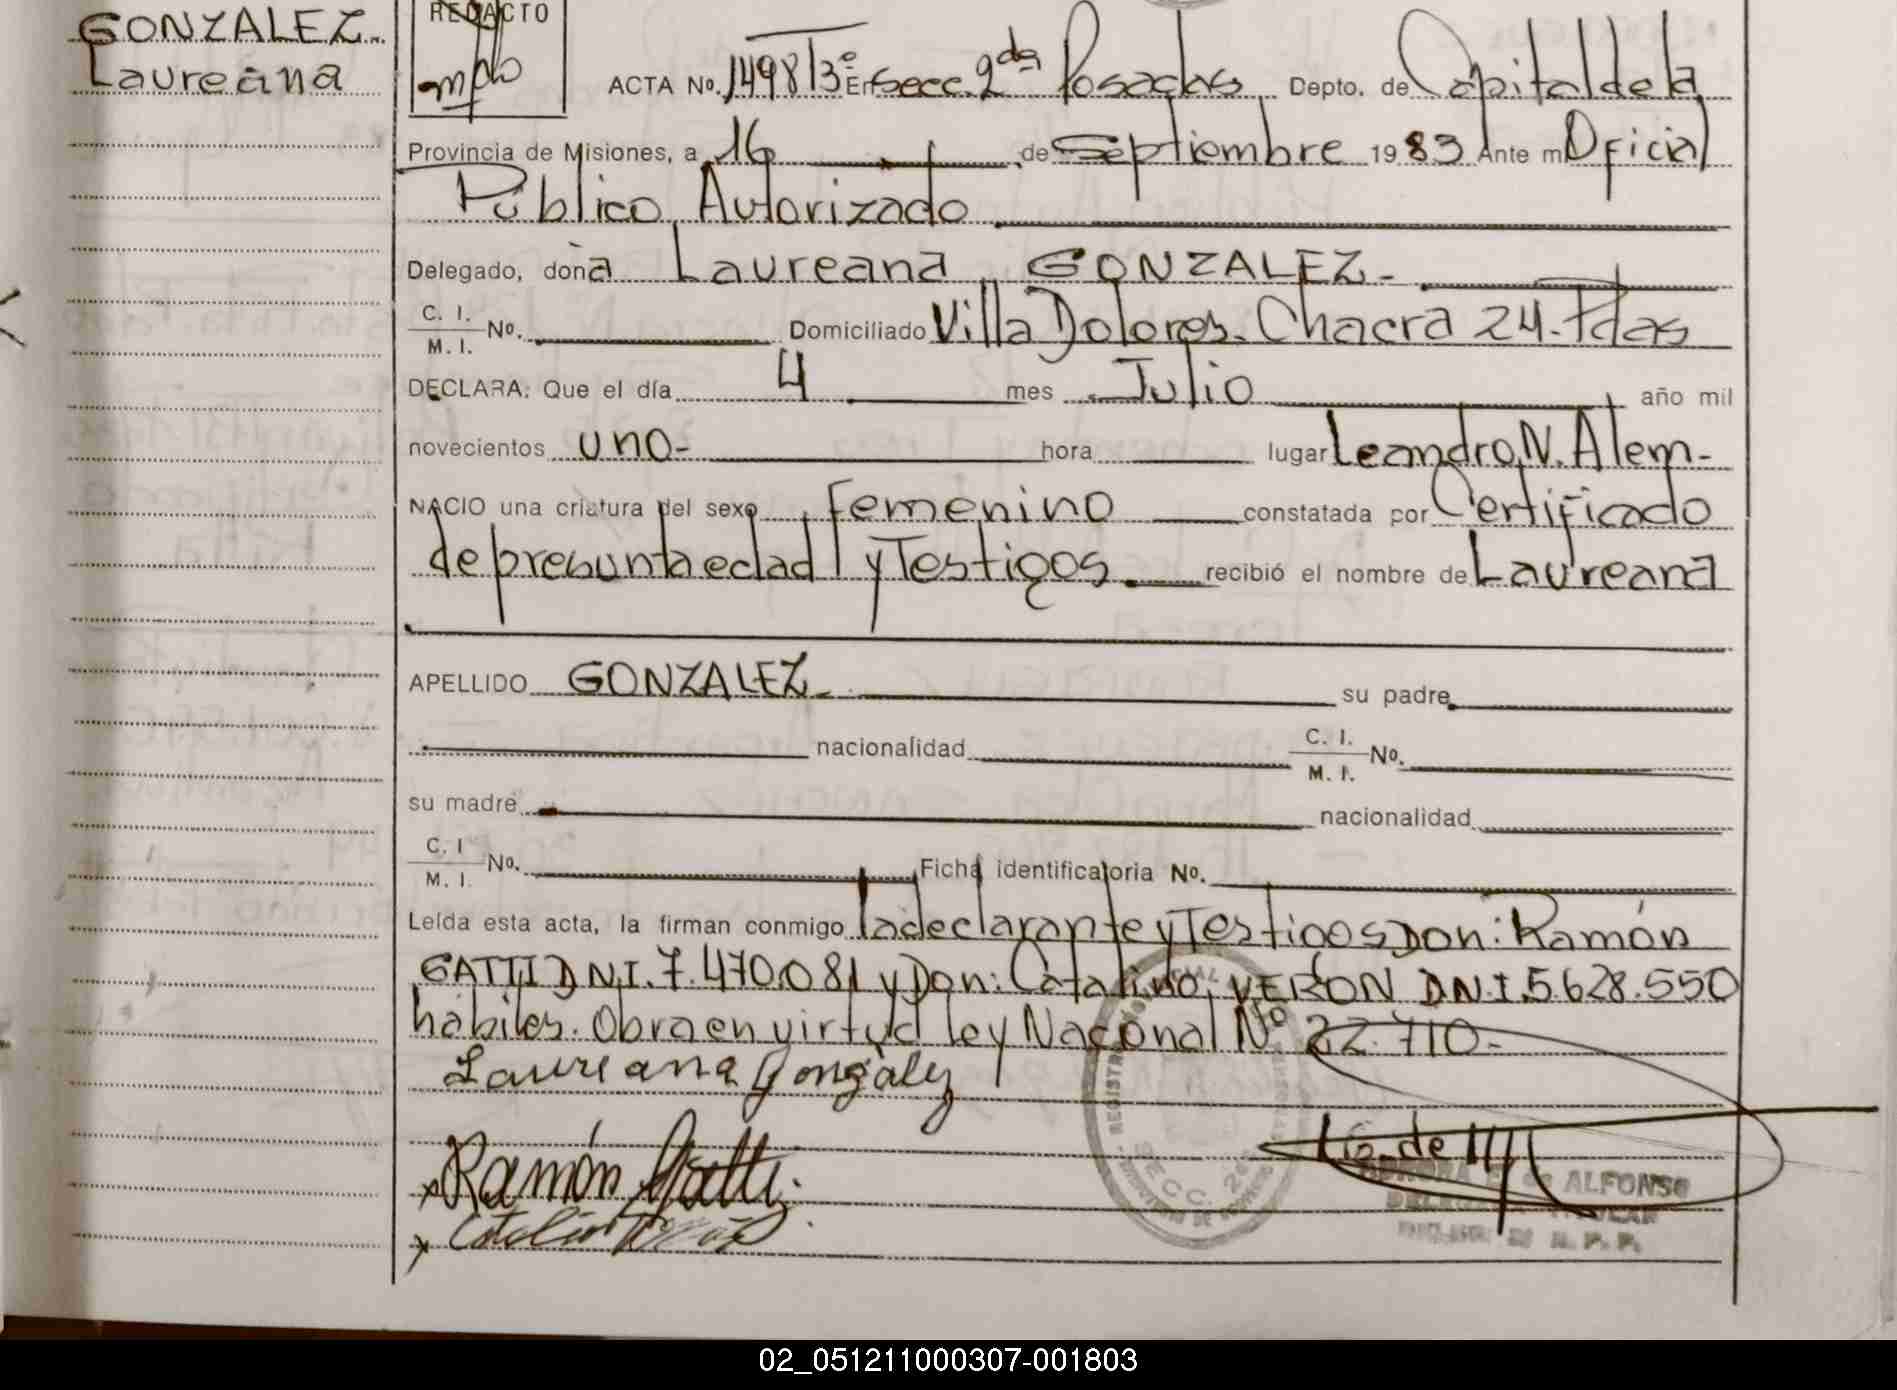 GONZALEZ.
Laureana
REDACTO
ACTA No. 1498/3º En Secc. 2da Posadas Depto. de Capital de la
Provincia de Misiones, a 16 de Septiembre 1983 Ante mi Oficial
Público Autorizado
Delegado, doña Laureana GONZALEZ-
C. I. / M. I. No. Domiciliado Villa Dolores. Chacra 24-Pdas
DECLARA: Que el día 4 mes Julio año mil
novecientos uno- hora lugar Leandro N. Alem-
NACIO una criatura del sexo Femenino constatada por Certificado
de presunta edad y Testigos. recibió el nombre de Laureana
APELLIDO GONZALEZ- su padre
nacionalidad C. I. / M. I. No.
su madre nacionalidad
C. I / M. I. No. Ficha identificatoria No.
Leída esta acta, la firman conmigo la declarante y Testigos Don: Ramón
GATTI D.N.I. 7.470.081 y Don: Catalino, VERON D.N.I. 5.628.550
habiles. Obra en virtud ley Nacional Nº 22.710-
Laureana Gonzalez
x Ramón Gatti.
x
SECC. 2da
de ALFONSO
02_051211000307-001803